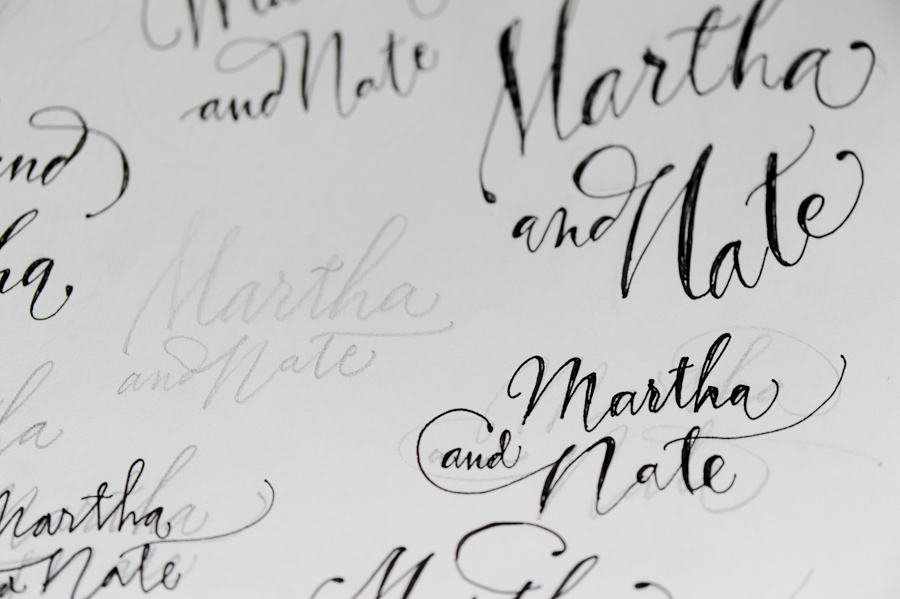 and Nate
Martha
and Nate
and
ha
Martha
and Nate
Martha
and Nate
ha
Martha
Nate